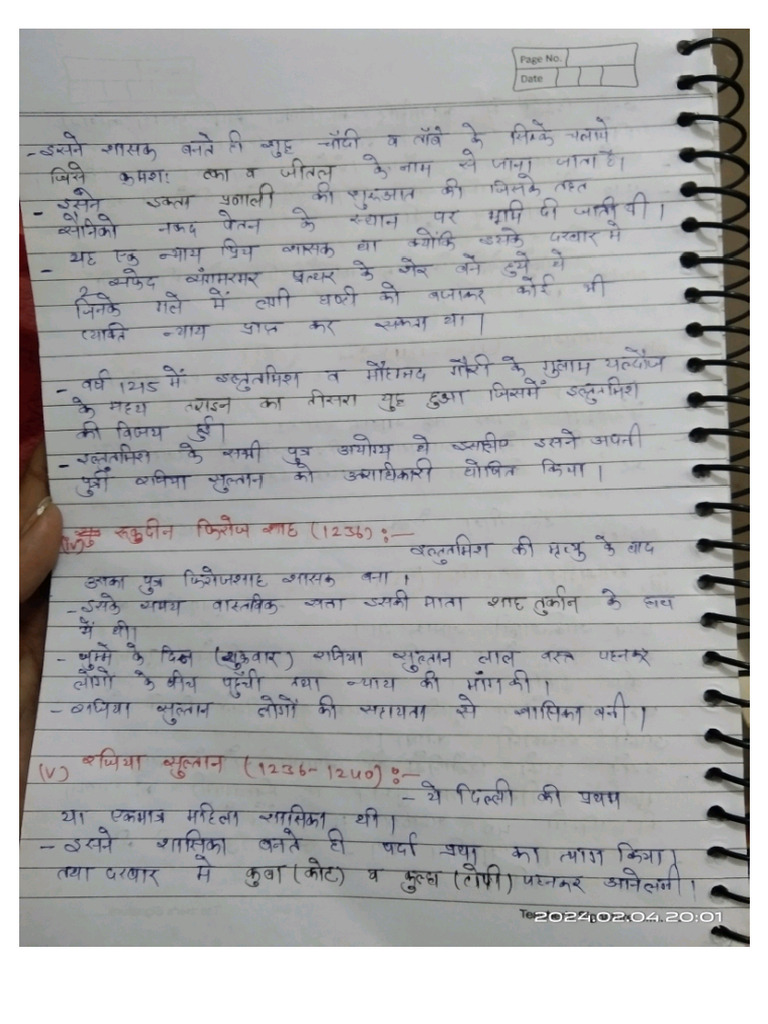 Page No.
Date
- इसने शासक बनते ही शुद्ध चाँदी व ताँबे के सिक्के चलाये
जिसे क्रमश: टका व जीतल के नाम से जाना जाता है।
- इसने इक्ता प्रणाली की शुरूआत की जिसके तहत
सैनिकों नकद वेतन के स्थान पर भूमि दी जाती थी।
- यह एक न्याय प्रिय शासक था क्योंकि इसके दरबार में
2 सफेद संगमरमर पत्थर के शेर बने हुये थे
जिनके गले में लगी घण्टी को बजाकर कोई भी
व्यक्ति न्याय प्राप्त कर सकता था।
- वर्ष 1215 में इल्तुतमिश व मोहम्मद गौरी के गुलाम यल्दौज
के मध्य तराइन का तीसरा युद्ध हुआ जिसमें इल्तुतमिश
की विजय हुई।
- इल्तुतमिश के सभी पुत्र अयोग्य थे इसलिए इसने अपनी
पुत्री रजिया सुल्तान को उत्तराधिकारी घोषित किया।
(iv) रूकुदीन फिरोज शाह (1236) :-
इल्तुतमिश की मृत्यु के बाद
उसका पुत्र फिरोजशाह शासक बना।
- इसके समय वास्तविक सत्ता इसकी माता शाह तुर्कान के हाथ
में थी।
- जुम्मे के दिन (शुक्रवार) रजिया सुल्तान लाल वस्त्र पहनकर
लोगों के बीच पहुँची तथा न्याय की मांग की।
- रजिया सुल्तान लोगों की सहायता से शासिका बनी।
(V) रजिया सुल्तान (1236-1240) :-
- ये दिल्ली की प्रथम
या एकमात्र महिला शासिका थी।
- इसने शासिका बनते ही पर्दा प्रथा का त्याग किया।
तथा दरबार में कुबा (कोट) व कुल्हा (टोपी) पहनकर आने लगी।
2024.02.04 20:01